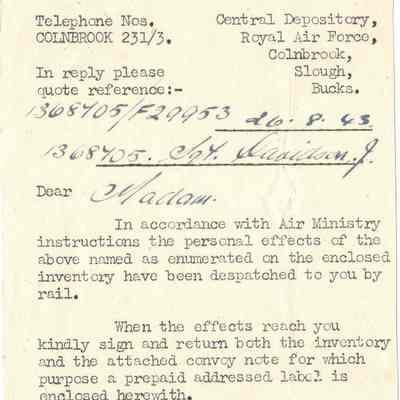 Telephone Nos. Central Depository,
COLNBROOK 231/3. Royal Air Force,
Colnbrook,
In reply please Slough,
quote reference:- Bucks.
1368705/F29953 26.8.43
1368705. Sgt. Davidson. J.
Dear Madam.
In accordance with Air Ministry
instructions the personal effects of the
above named as enumerated on the enclosed
inventory have been despatched to you by
rail.
When the effects reach you
kindly sign and return both the inventory
and the attached convoy note for which
purpose a prepaid addressed label is
enclosed herewith.